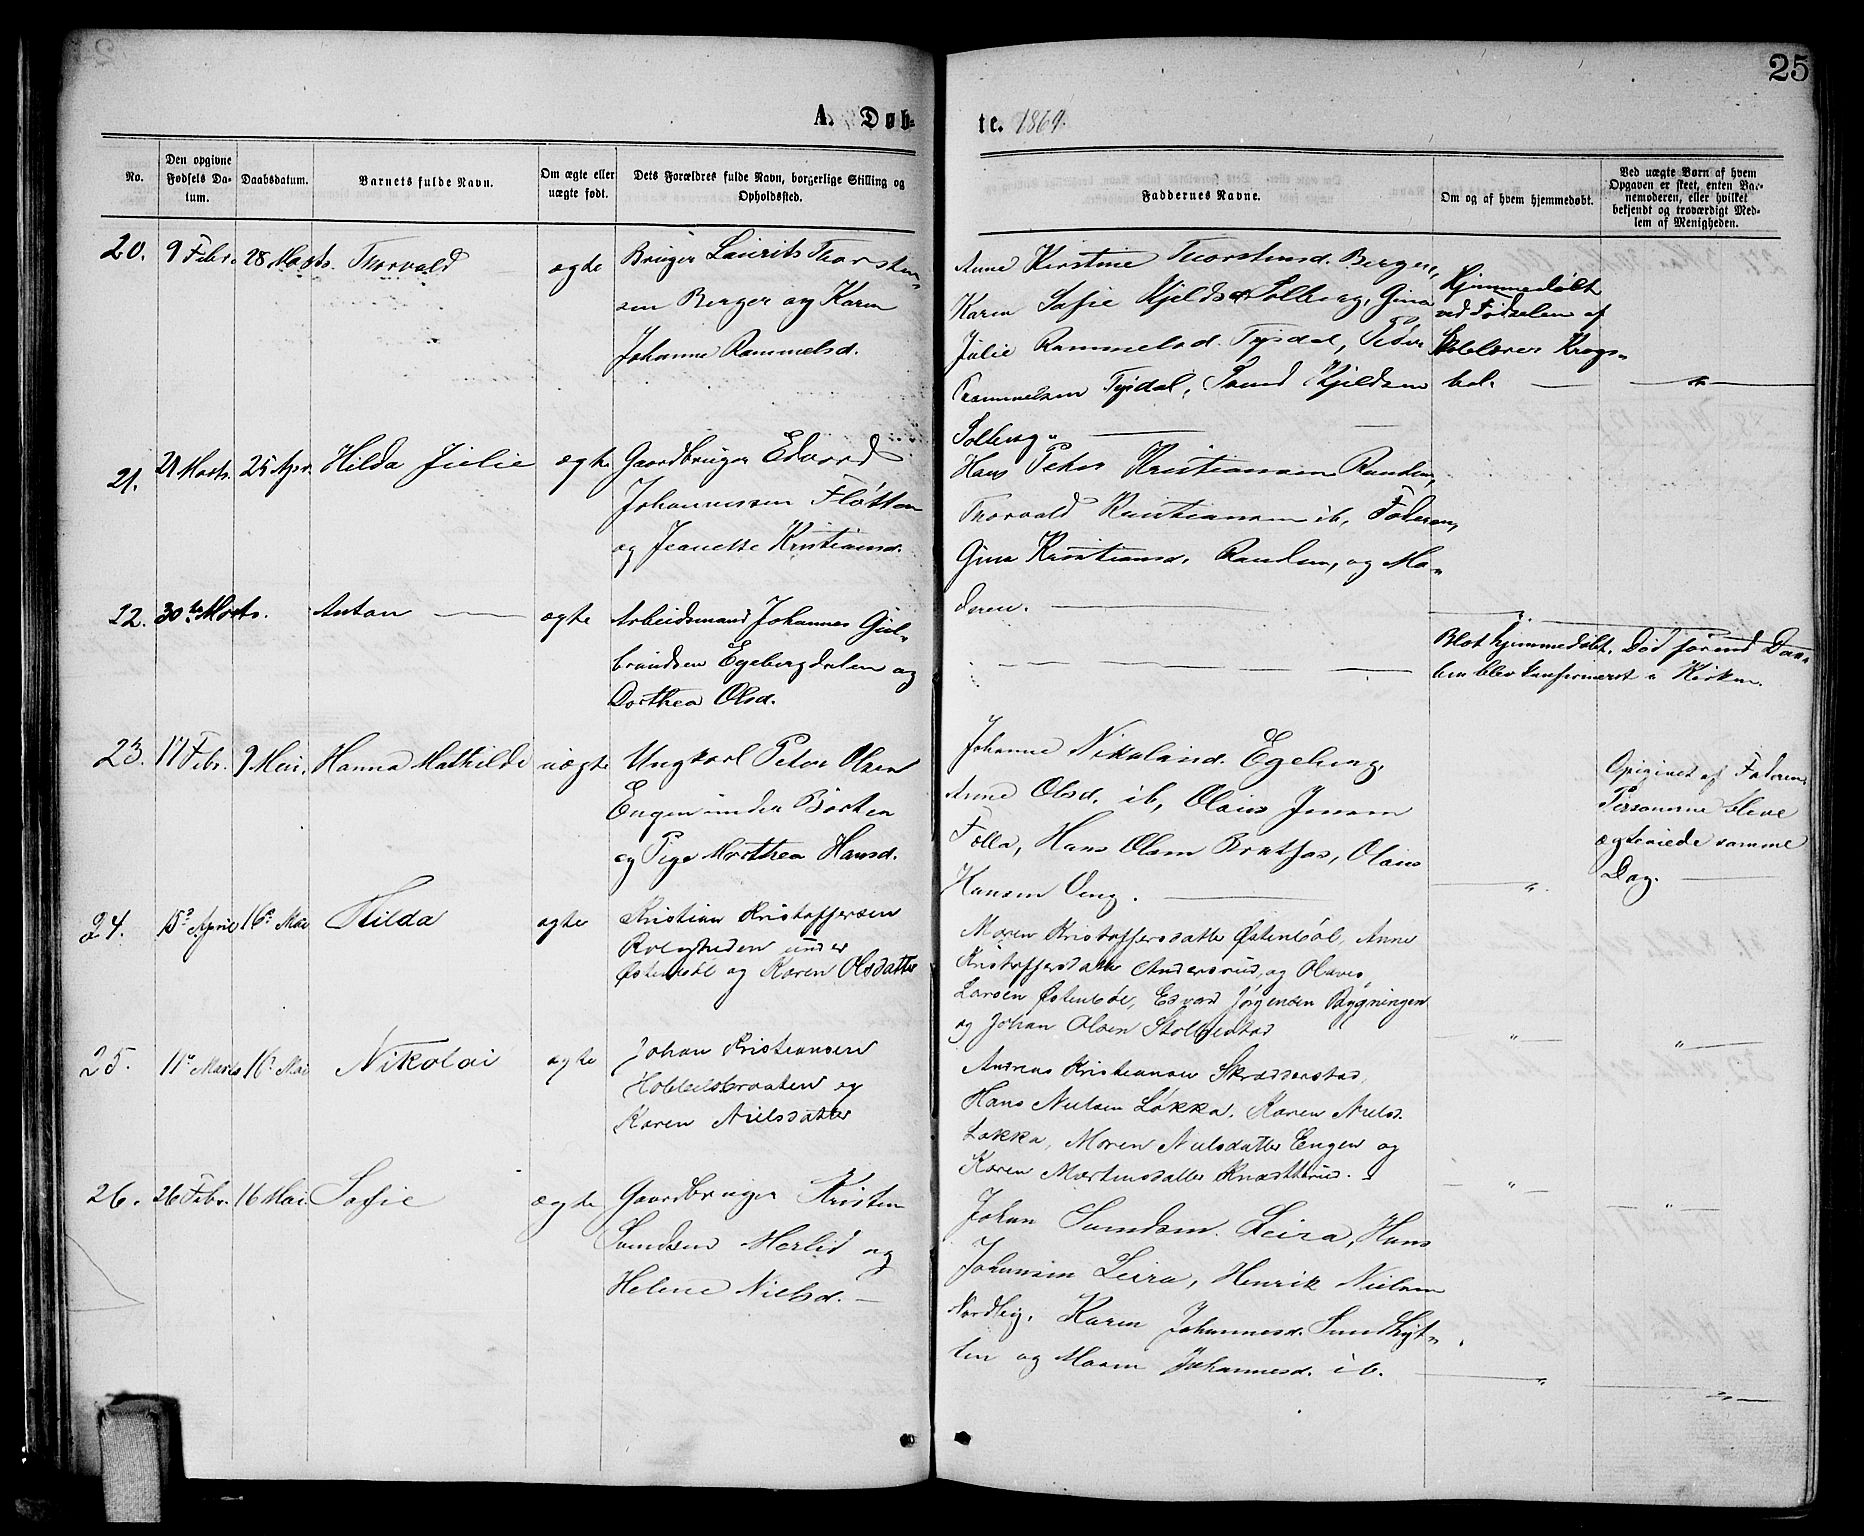 25
A. Døb-
te. 1869.
No.
Den opgivne Fødsels Datum.
Daabsdatum.
Barnets fulde Navn.
Om ægte eller uægte født.
Dets Forældres fulde Navn, borgerlige Stilling og Opholdssted.
Faddernes Navne.
Om og af hvem hjemmedøbt.
Ved uægte Børn af hvem Opgaven er skeet, enten Barnemoderen, eller hvilket bekjendt og troværdigt Medlem af Menigheden.
20.
9 Febr.
28 Marts.
Thorvald
ægte
Bruger Laurits Thorsten-
sen Berger og Karen
Johanne Rammelsd.
Anne Kirstine Thorstensd. Berger,
Karen Sofie Kjeldsd. Solberg, Gina
Julie Rammelsd. Tysdal, Peder
Rammelsen Tysdal, Svend Kjeldsen
Solberg.
Hjemmedøbt
ved Fødselen af
Skolelærer Krogs-
bøl.
21.
21 Marts.
25 Apr.
Hilda Julie
ægte
Gaardbruger Edvard
Johannessen Fløtten
og Jeanette Kristiansd.
Hans Peter Kristiansen Randen,
Thorvald Kristiansen ib, Faderen,
Gina Kristiansd. Randen, og Mo-
deren.
22.
30te Marts.
Anton
ægte
Arbeidsmand Johannes Gul-
brandsen Egebergdalen og
Dorthea Olsd.
Blot hjemmedøbt. Død førend Daa-
ben blev konfirmeret i Kirken.
23.
17 Febr.
9 Mai.
Hanna Mathilde
uægte
Ungkarl Peter Olsen
Engen under Børten
og Pige Marthea Hansd.
Johanne Nikolaisd. Egeberg,
Anne Olsd. ib, Olaus Jensen
Folla, Hans Olsen Bratfos, Olaus
Hansen Veng.
Opgivet af Faderen.
Personerne bleve
ægteviede samme
Dag.
24.
15de April
16de Mai
Hilda
ægte
Kristian Kristoffersen
Roligheden under
Østenbøl og Karen Olsdatter
Maren Kristoffersdatter Østenbøl, Anne
Kristoffersdatter Andersrud, og Olaves
Larsen Østenbøl, Edvard Jørgensen Bygningen
og Johan Olsen Stolpestad
25.
11te Marts
16de Mai
Nikolai
ægte
Johan Kristiansen
Hobbelsbraaten og
Karen Nielsdatter
Andreas Kristiansen Skrædderstad,
Hans Nielsen Løkka. Karen Niels.
Løkka, Maren Nielsdatter Engen og
Karen Martinsdatter Knatterud.
26.
26 Febr.
16 Mai
Sofie
ægte
Gaardbruger Kristen
Svendsen Herlid og
Helene Nielsd.
Johan Svendsen. Leira, Hans
Johansen Leira, Henrik Nielsen
Nordby, Karen Johannesd. Sundhyt-
ten og Maren Johannesd. ib.